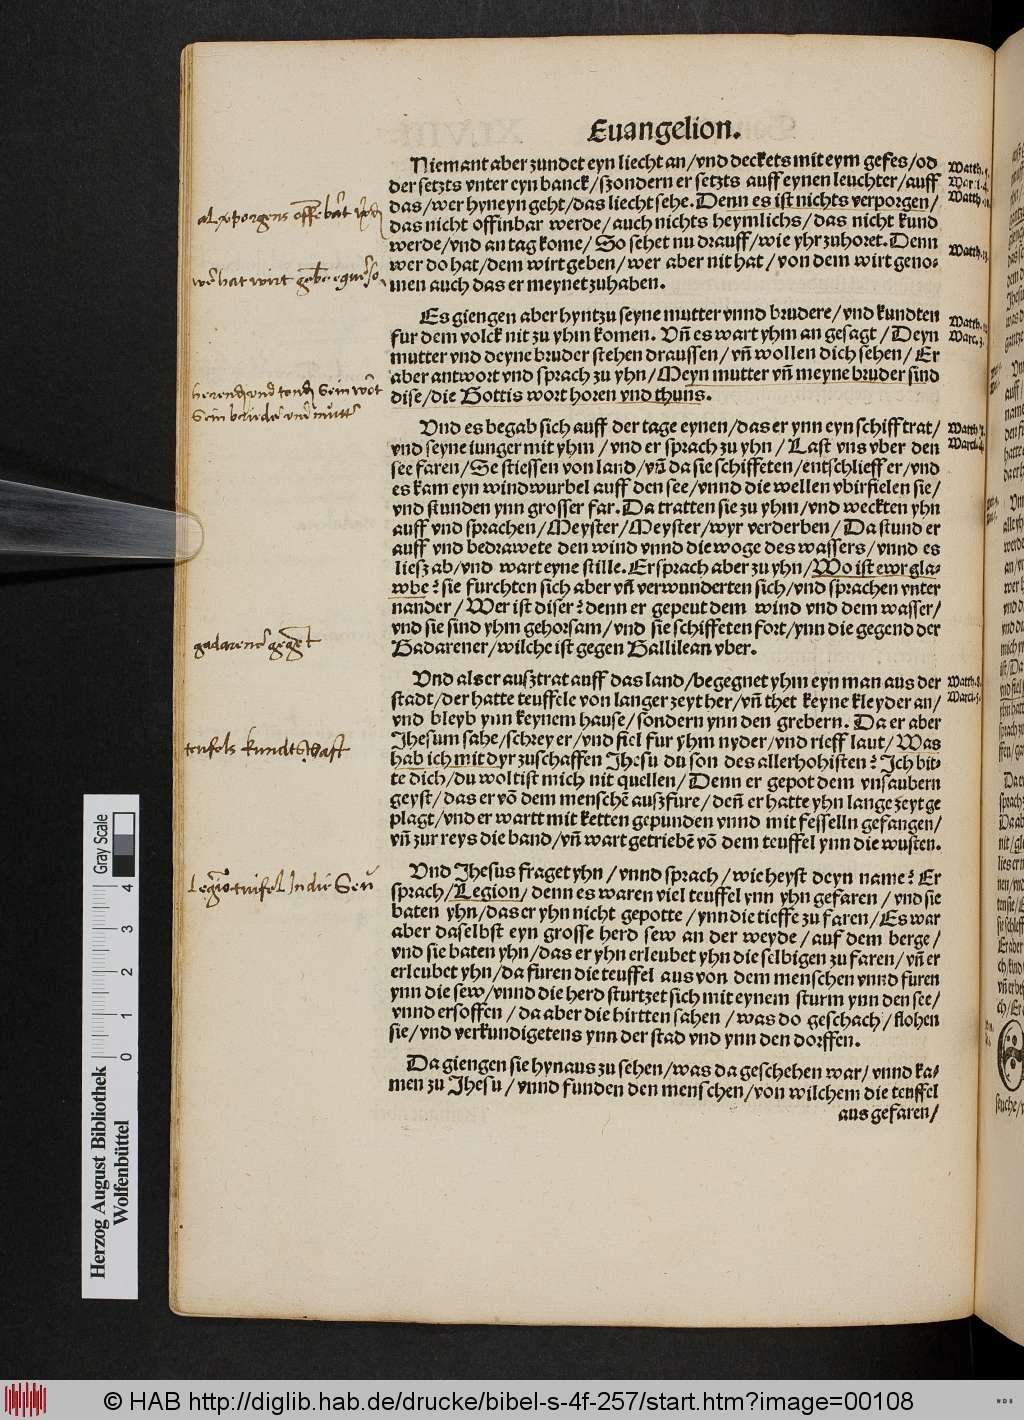 Euangelion.
Niemant aber zundet eyn liecht an/vnd deckets mit eym gefes/od
der setzts vnter eyn banck/szondern er setzts auff eynen leuchter/auff
das/wer hyneyn geht/das liecht sehe. Denn es ist nichts verporgen/
das nicht offinbar werde/auch nichts heymlichs/das nicht kund
werde/vnd an tag kome/So sehet nu drauff/wie yhr zuhoret. Denn
wer do hat/dem wirt geben/wer aber nit hat/von dem wirt geno-
men auch das er meynet zuhaben.
Matth.5.
Mar.i.4.
Matth.10.
Matth.13.
al vporgens
wer hat wirt
Es giengen aber hyntzu seyne mutter vnnd brudere/vnd kundten
fur dem volck nit zu yhm komen. Vñ es wart yhm an gesagt/Deyn
mutter vnd deyne bruder stehen draussen/vñ wollen dich sehen/Er
aber antwort vnd sprach zu yhn/Meyn mutter vñ meyne bruder sind
dise/die Gottis wort horen vnd thuns.
Matth.12.
Marc.3.
Vnd es begab sich auff der tage eynen/das er ynn eyn schiff trat/
vnd seyne iunger mit yhm/vnd er sprach zu yhn/Last vns vber den
see faren/Se stiessen von land/vñ da sie schiffeten/entschlieff er/vnd
es kam eyn windwurbel auff den see/vnnd die wellen vbirfielen sie/
vnd stunden ynn grosser far. Da tratten sie zu yhm/vnd weckten yhn
auff vnd sprachen/Meyster/Meyster/wyr verderben/Da stund er
auff vnd bedrawete den wind vnnd die woge des wassers/vnnd es
liesz ab/vnd wart eyne stille. Er sprach aber zu yhn/Wo ist ewr gla-
wbe? sie furchten sich aber vñ verwunderten sich/vnd sprachen vnter
nander/Wer ist diser? denn er gepeut dem wind vnd dem wasser/
vnd sie sind yhm gehorsam/vnd sie schiffeten fort/ynn die gegend der
Gadarener/wilche ist gegen Gallilean vber.
Matth.8.
Marci.4.
Vnd als er ausztrat auff das land/begegnet yhm eyn man aus der
stadt/der hatte teuffele von langer zeyt her/vñ thet keyne kleyder an/
vnd bleyb ynn keynem hause/sondern ynn den grebern. Da er aber
Jhesum sahe/schrey er/vnd fiel fur yhm nyder/vnd rieff laut/Was
hab ich mit dyr zuschaffen Jhesu du son des allerhohisten? Jch bit-
te dich/du woltist mich nit quellen/Denn er gepot dem vnsaubern
geyst/das er võ dem menschẽ auszfure/deñ er hatte yhn lange zeyt ge
plagt/vnd er wartt mit ketten gepunden vnnd mit fesselln gefangen/
vñ zur reys die band/vñ wart getriebẽ võ dem teuffel ynn die wusten.
Matth.8.
Marci.5.
teufels kundtschaft
Vnd Jhesus fraget yhn/vnnd sprach/wie heyst deyn name? Er
sprach/Legion/denn es waren viel teuffel ynn yhn gefaren/vnd sie
baten yhn/das er yhn nicht gepotte/ynn die tieffe zu faren/Es war
aber daselbst eyn grosse herd sew an der weyde/auf dem berge/
vnd sie baten yhn/das er yhn erleubet yhn die selbigen zu faren/vñ er
erleubet yhn/da furen die teuffel aus von dem menschen vnnd furen
ynn die sew/vnnd die herd sturtzet sich mit eynem sturm ynn den see/
vnnd ersoffen/da aber die hirtten sahen/was do geschach/flohen
sie/vnd verkundigetens ynn der stad vnd ynn den dorffen.
Da giengen sie hynaus zu sehen/was da geschehen war/vnnd ka-
men zu Jhesu/vnnd funden den menschen/von wilchem die teuffel
aus gefaren/
Herzog August Bibliothek
Wolfenbüttel
0 1 2 3 4
Gray Scale
© HAB http://diglib.hab.de/drucke/bibel-s-4f-257/start.htm?image=00108